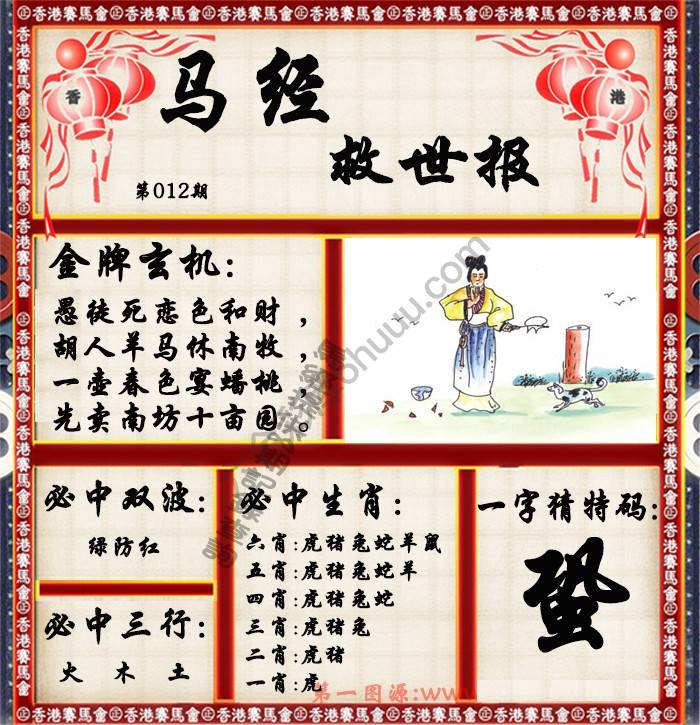 香 港
马经
救世报
第012期
金牌玄机:
愚徒死恋色和财，
胡人羊马休南牧，
一壶春色宴蟠桃，
先卖南坊十亩园。
必中双波:
绿防红
必中三行:
火 木 土
必中生肖:
六肖:虎猪兔蛇羊鼠
五肖:虎猪兔蛇羊
四肖:虎猪兔蛇
三肖:虎猪兔
二肖:虎猪
一肖:虎
一字猜特码:
蛩
第一图源:www
香港赛馬會